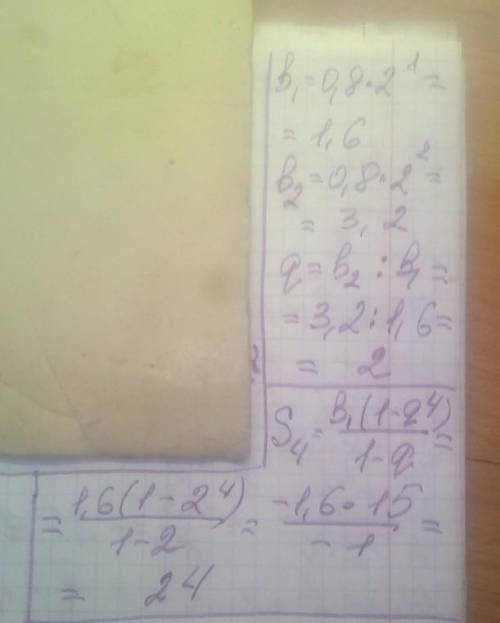 b₁ = 0,8·2¹ =
= 1,6
b₂ = 0,8·2² =
= 3,2
q = b₂ : b₁ =
= 3,2 : 1,6 =
= 2
S₄ = b₁(1-q⁴)/1-q =
= 1,6(1-2⁴)/1-2 = -1,6·15/-1 =
= 24